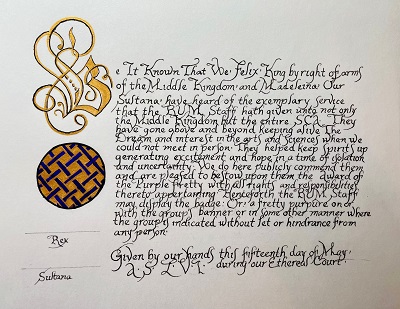 Be It Known That We Felix King by right of arms
of the Middle Kingdom and Madeleina Our
Sultana have heard of the exemplary service
that the BUM Staff hath given unto not only
the Middle Kingdom but the entire SCA. They
have gone above and beyond keeping alive The
Dream and interest in the arts and sciences when we
could not meet in person. They helped keep spirits up
generating excitement and hope in a time of isolation
and uncertainty. We do here publicly commend them
and are pleased to bestow upon them the award of
the Purple Fretty with all rights and responsibilities
thereto appertaining. Henceforth the BUM Staff
may display the badge: Or a fretty purpure on or
with the group's banner or in some other manner where
the group is indicated without let or hindrance from
any person.
Given by our hands this fifteenth day of May
A.S. LVI. during our Ethereal Court.
Rex
Sultana